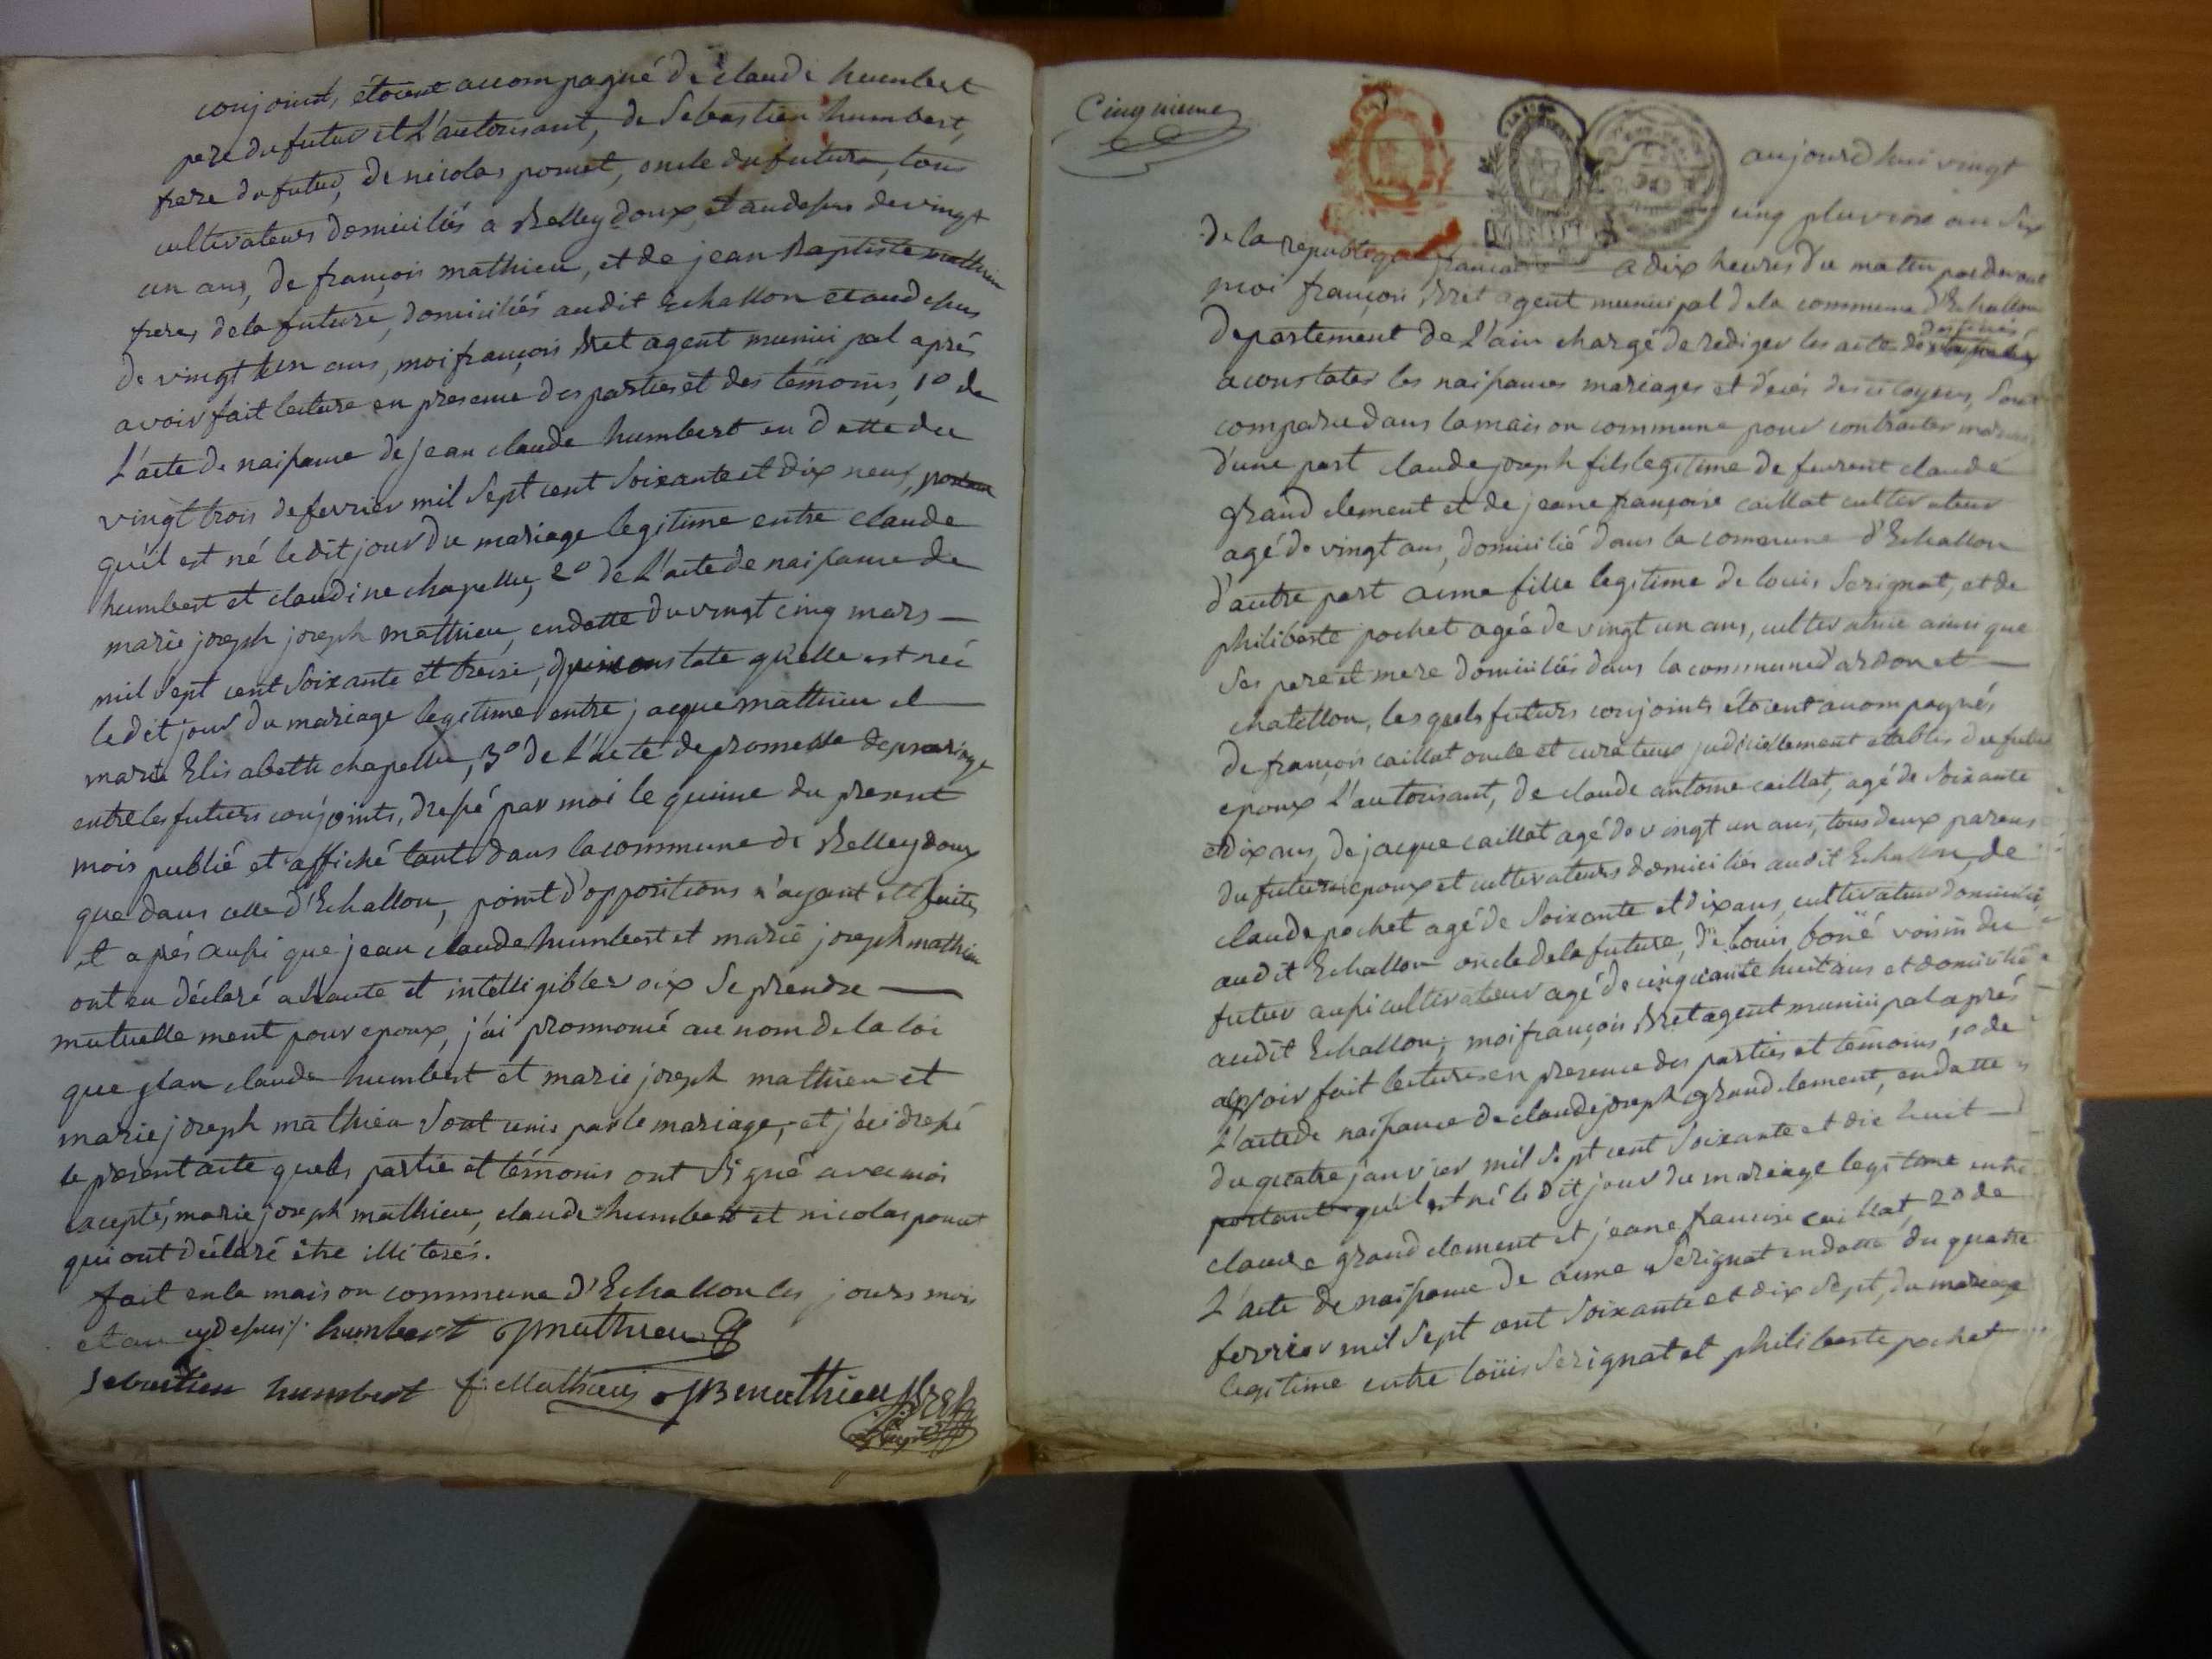 conjoints, étoient accompagné de claude humbert
pere du futur et L'autorisant, de Sebastien humbert,
frere du futur, de nicolas poncet, oncle du future, tous
cultivateurs domiciliés a Belleydoux, et audessus de vingt
un ans, de françois mathieu, et de jean Baptiste mathieu
freres de la future, domiciliés audit Echallon et audessus
de vingt un ans, moi françois Bret agent municipal aprés
avoir fait lecture en presence des parties et des témoins, 1º de
L'acte de naissance de jean claude humbert en datte du
vingt trois de fevrier mil sept cent soixante et dix neuf, portant
qu'il est né le dit jour du mariage legitime entre claude
humbert et claudine chapellu, 2º de L'acte de naissance de
marie joseph joseph mathieu, en datte du vingt cinq mars
mil sept cent soixante et treise, qui constate qu'elle est née
le dit jour du mariage legitime entre jacque mathieu et
marie Elisabeth chapellu, 3º de L'acte de promesse de mariage
entre les futurs conjoints, dressé par moi le quinze du present
mois publié et affiché tant dans la commune de Belleydoux
que dans celle d'Echallon, point d'oppositions n'ayant été faites
et aprés aussi que jean claude humbert et marie joseph mathieu
ont eu déclaré a haute et intelligible voix se prendre
mutuellement pour epoux, j'ai prononcé au nom de la loi
que jean claude humbert et marie joseph mathieu et
marie joseph mathieu sont unis par le mariage, et j'ai dressé
le present acte que les partie et témoins ont signé avec moi
exceptés marie joseph mathieu, claude humbert et nicolas poncet
qui ont déclaré être illiterés.
fait en la maison commune d'Echallon les jours mois
et an cy dessus /. humbert J mathieu
Sebastien humbert f. Mathieu JB mathieu Bret
agent
Cinquieme
aujourd hui vingt
cinq pluviose an six
de la republique francaise a dix heures du matin par devant
moi françois Bret agent municipal de la commune d'Echallon
departement de L'ain chargé de rediger les acte destinés
a constater les naissances mariages et décés des citoyens, sont
comparu dans la maison commune pour contracter mariage
d'une part claude joseph fils legitime de furent claude
grand clement et de jeanne françoise caillat cultivateur
agé de vingt ans, domicilié dans la commune d'Echallon
d'autre part anne fille legitime de louis Serignat, et de
philiberte pochet agée de vingt un ans, cultivatrice ainsi que
ses pere et mere domiciliés dans la commune d'ardon et
chatillon, les quels futurs conjoints étoient accompagnés
de françois caillat oncle et curateur judiciellement etablis du futur
epoux L'autorisant, de claude antoine caillat, agé de soixante
et dix ans, de jacque caillat agé de vingt un ans, tous deux parens
du futur epoux et cultivateurs domiciliés audit Echallon, de
claude pochet agé de soixante et dix ans, cultivateur domicilié
audit Echallon oncle de la future, de Louis boné voisin du
futur aussi cultivateur agé de cinquante huit ans et domicilié
audit Echallon, moi françois Bret agent municipal aprés
avoir fait lecture en presence des parties et témoins, 1º de
L'acte de naissance de claude joseph grand clement, en datte
du quatre janvier mil sept cent soixante et dix huit
portant qu'il est né le dit jour du mariage legitime entre
claude grand clement et jeane francoise caillat, 2º de
L'acte de naissance de anne Serignat en datte du quatre
fevrier mil sept cent soixante et dix sept, du mariage
legitime entre loüis Serignat et philiberte pochet